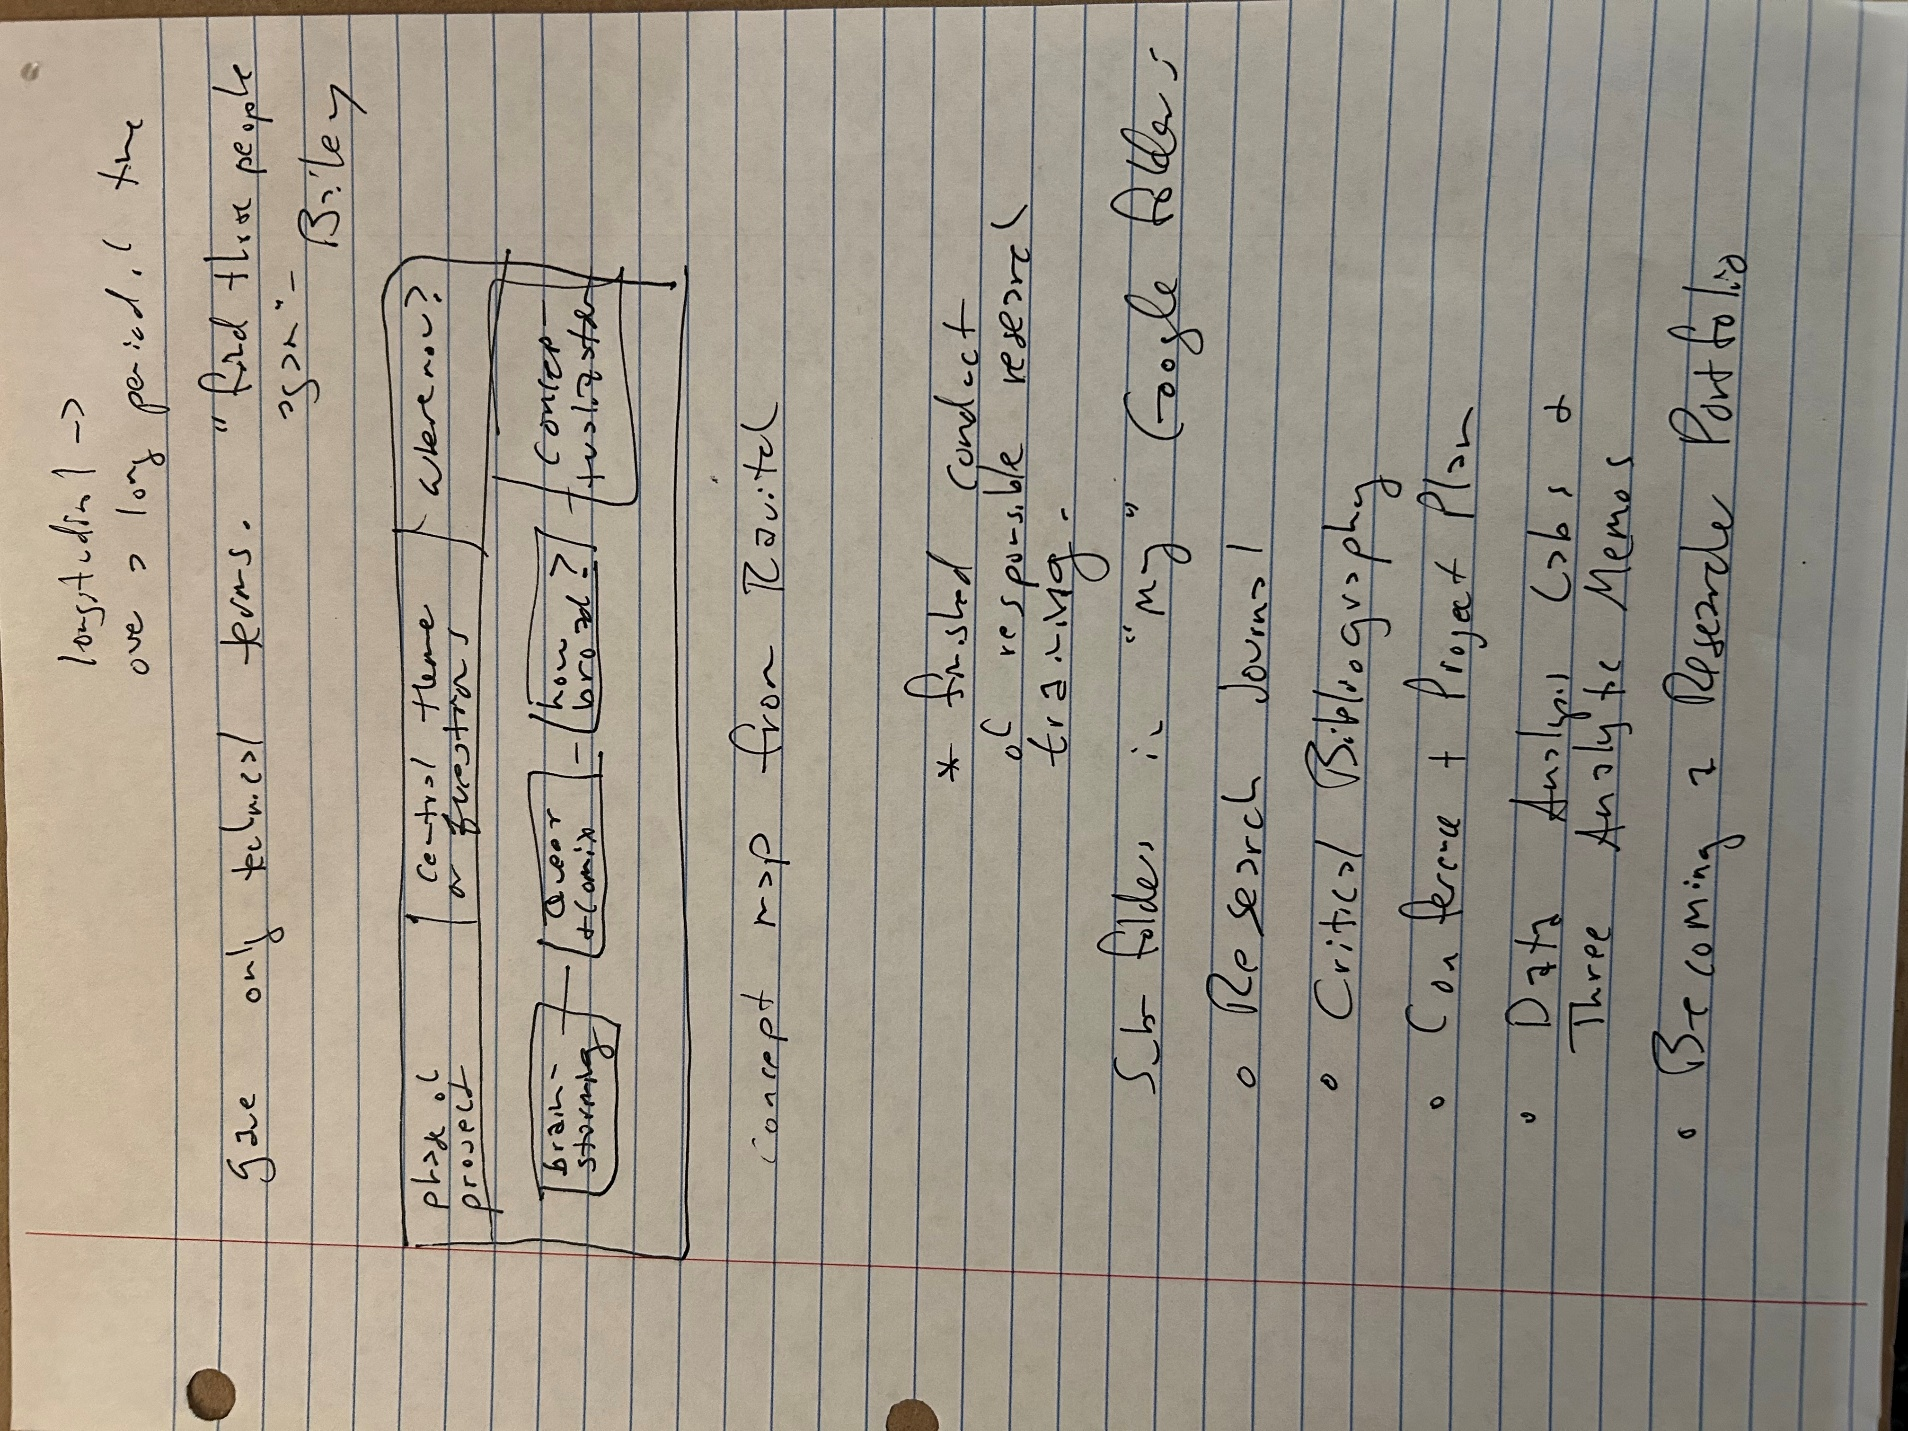 longitudinl →
ove a long period of time
gave only technical terms. "find those people
again" -
Briley
phase of project | central theme or questions | where now?
brain-storming | Queer + comix | how broad? | Concep-tualization
concept map from Ravitch
* finished conduct
of responsible research
training.
Sub folders in "my" Google folder:
o Research Journal
o Critical Bibliography
o Conference + Project Plan
o Data Analysis Labs &
Three Analytic Memos
o Becoming a Researcher Portfolio